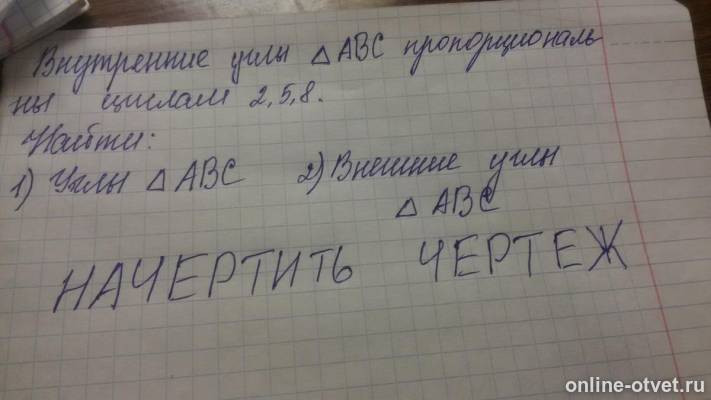 Внутренние углы △ABC пропорциональ
ны числам 2,5,8.
Найти:
1) Углы △ABC 2) Внешние углы
△ABC
НАЧЕРТИТЬ ЧЕРТЕЖ
online-otvet.ru